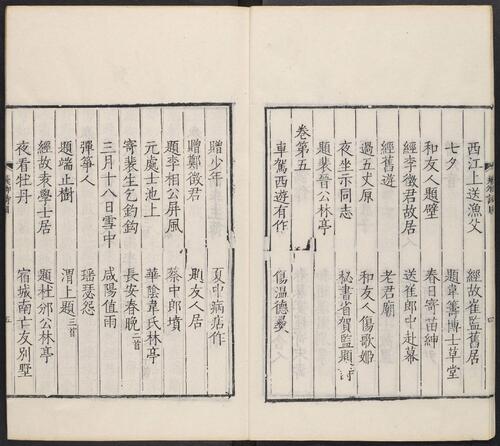 西江上送漁父　經故崔監舊居
七夕　題韋籌博士草堂
和友人題壁　春日寄苗紳
經李徵君故居　送崔郎中赴幕
經舊遊　老君廟
過五丈原　和友人傷歌姬
夜坐示同志　秘書省賀監題詩
題裴晉公林亭
卷第五
車駕西遊有作　傷溫德彝
四
贈少年　夏中病痁作
贈鄭徵君　題友人居
題李相公屏風　蔡中郎墳
元處士池上　華陰韋氏林亭
寄裴生乞釣鉤　長安春晚二首
三月十八日雪中　咸陽值雨
彈箏人　瑤瑟怨
題端正樹　渭上題三首
經故袁學士居　題杜邠公林亭
夜看牡丹　宿城南亡友別墅
五